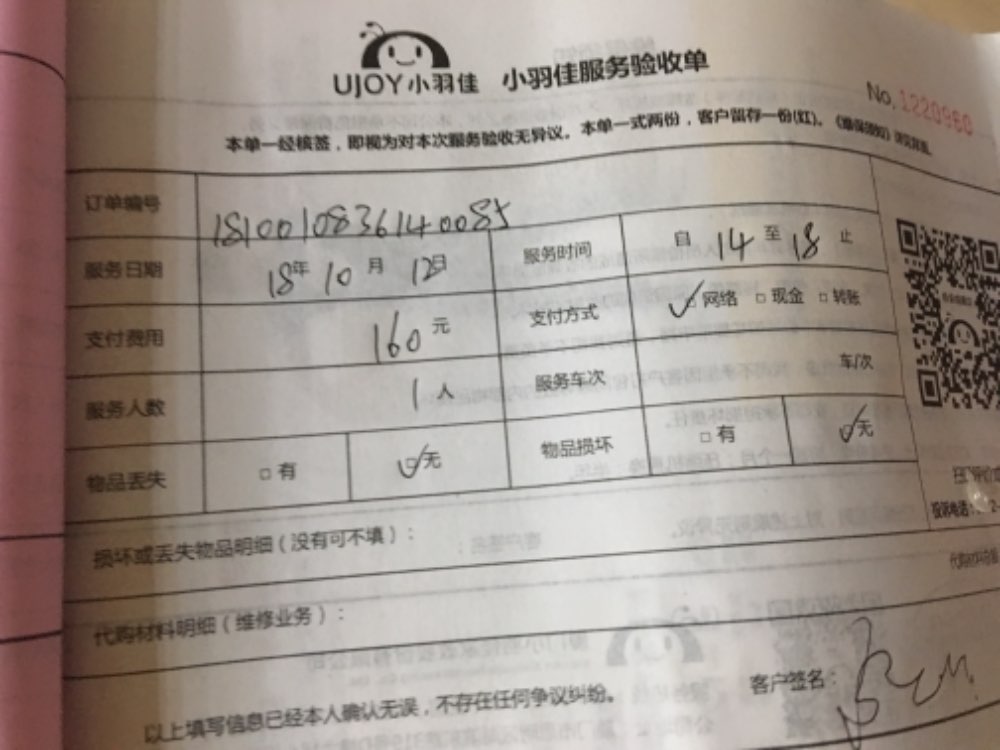 UJOY小羽佳 小羽佳服务验收单
No.1220960
本单一经核签，即视为对本次服务验收无异议。本单一式两份，客户留存一份(红)。《维保须知》详见背面。
订单编号 1810010836140085
服务日期 18年 10月 12日 服务时间 自 14 至 18 止
支付费用 160元 支付方式 ☑网络 □现金 □转账
服务人数 1人 服务车次 车/次
物品丢失 □有 ☑无 物品损坏 □有 ☑无
投诉电话：
损坏或丢失物品明细（没有可不填）：
代购材料明细（维修业务）：
以上填写信息已经本人确认无误，不存在任何争议纠纷。
客户签名：